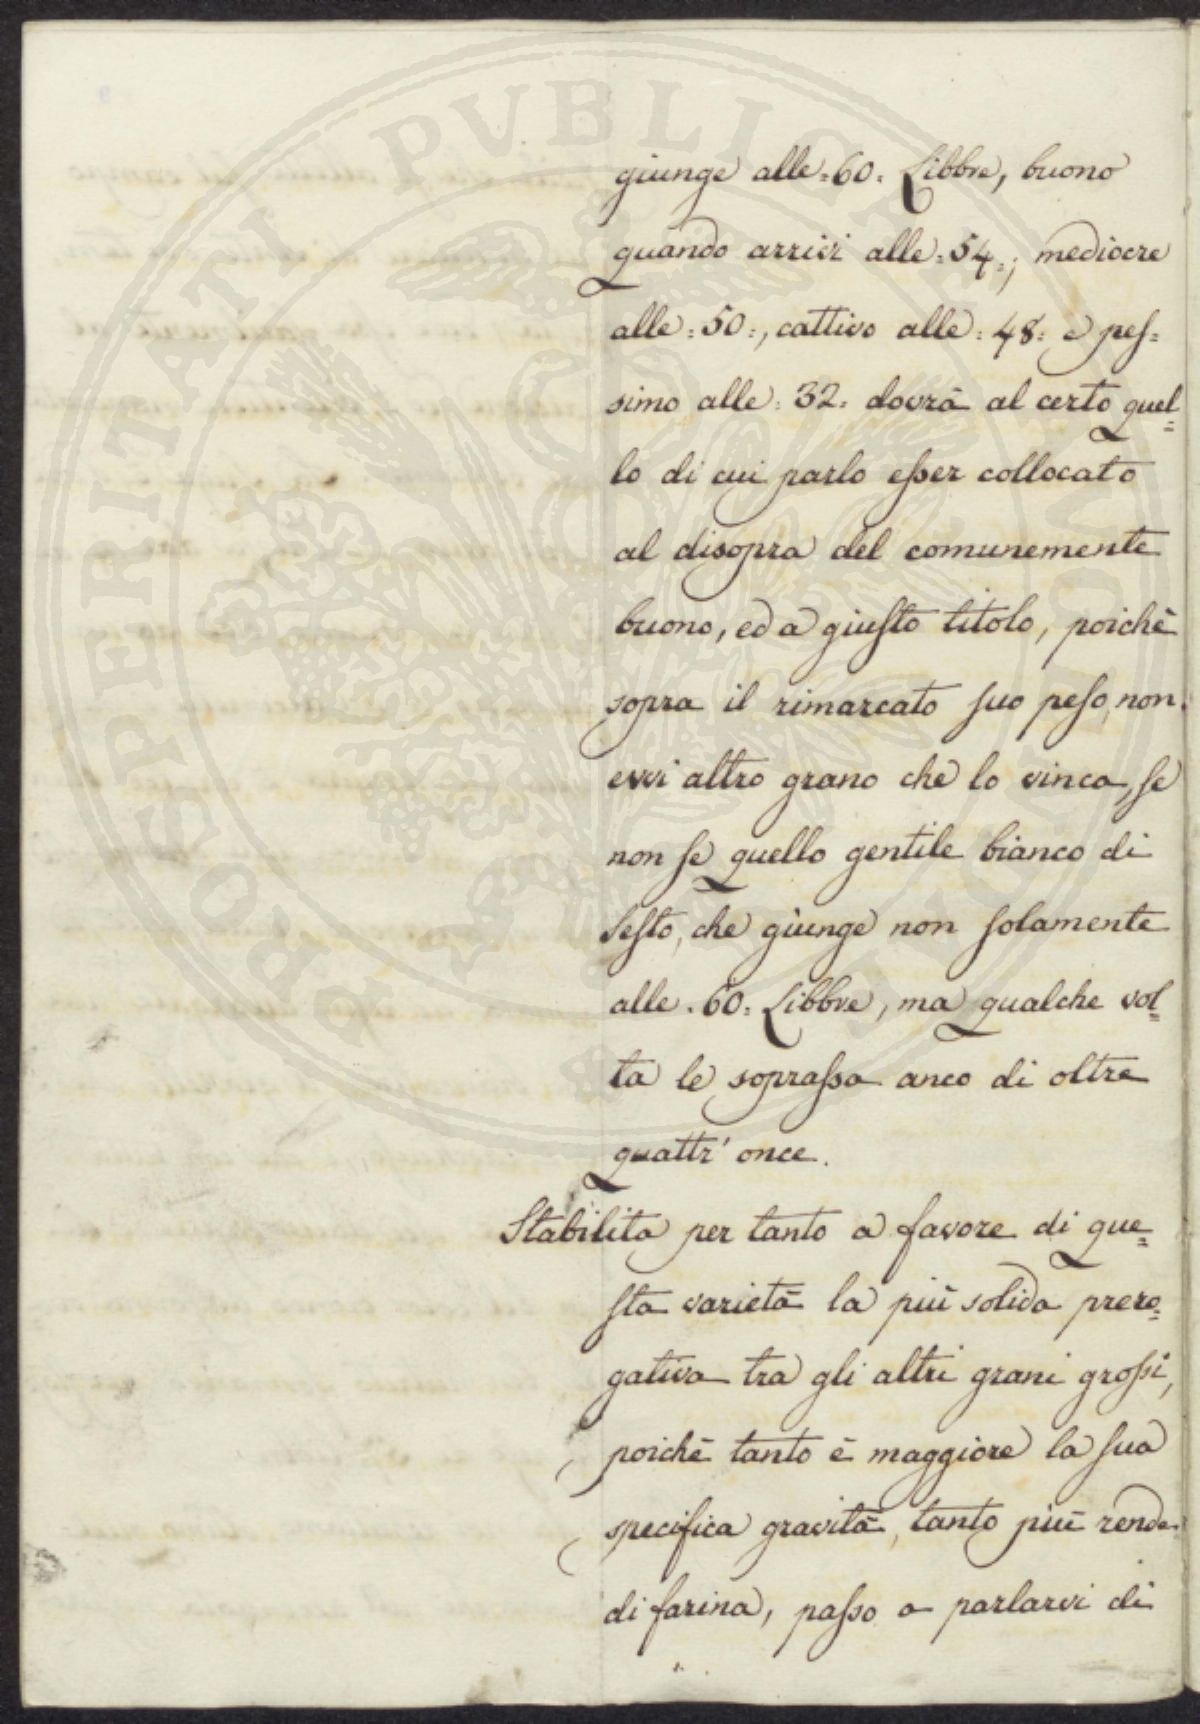 giunge alle=60= Libbre, buono
quando arrivi alle=54=; mediocre
alle=50=, cattivo alle=48= e pes=
simo alle=32= dovrà al certo quel=
lo di cui parlo esser collocato
al disopra del comunemente
buono, ed a giusto titolo, poichè
sopra il rimarcato suo peso, non
evvi altro grano che lo vinca, se
non se quello gentile bianco di
Sesto, che giunge non solamente
alle=60= Libbre, ma qualche vol=
ta le soprassa anco di oltre
quattr'once.
Stabilita per tanto a favore di que=
sta varietà la più solida prero=
gativa tra gli altri grani grossi,
poichè tanto è maggiore la sua
specifica gravità, tanto più rende
di farina, passo a parlarvi di
PROSPERITATI PVBLICAE